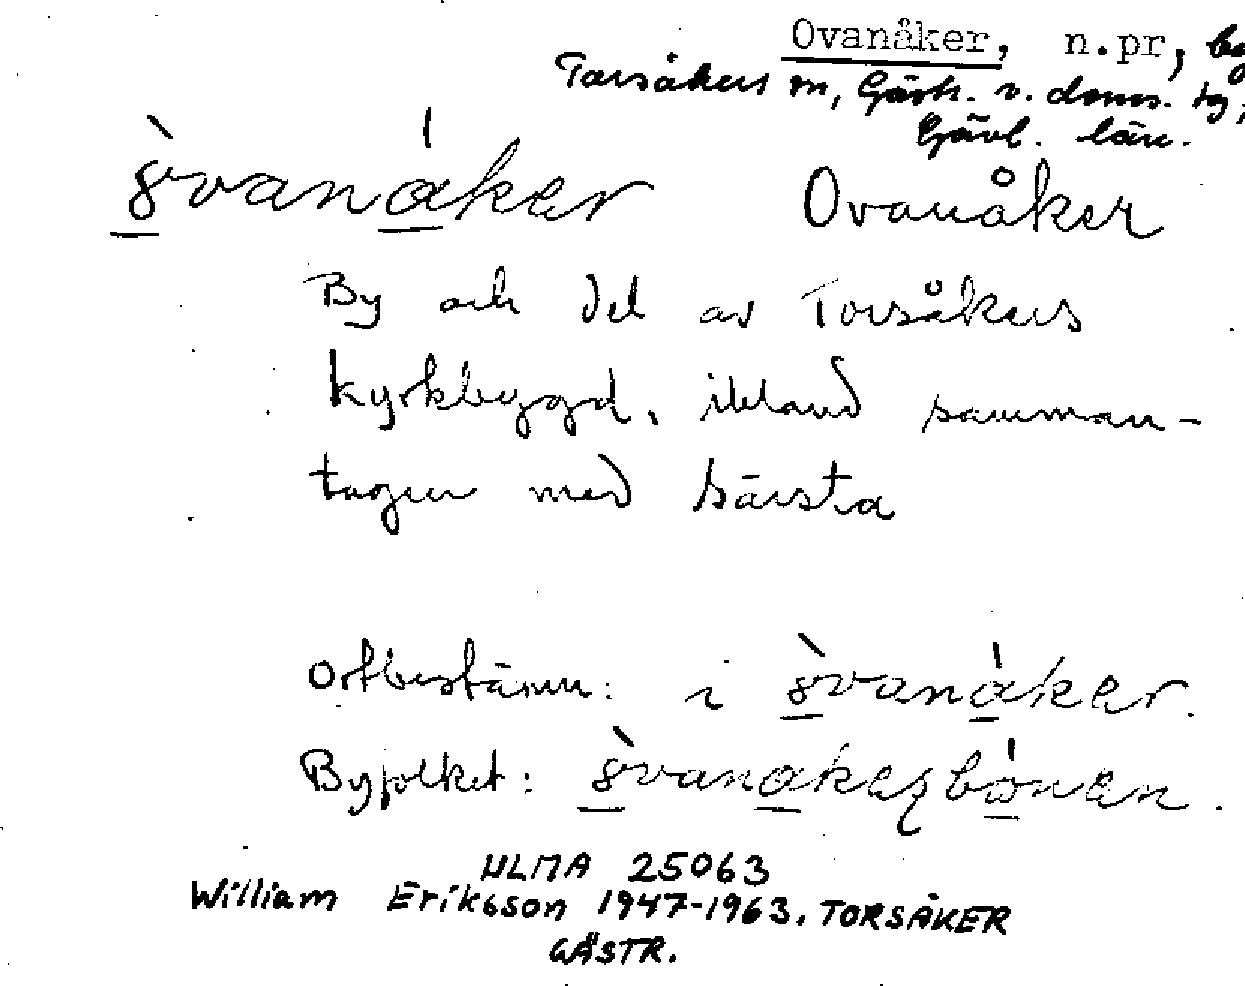 Ovanåker, n.pr, by
Torsåkers sn, Gästr. v. doms. tg,
Gävl. län.
òvanáker Ovanåker
By och del av Torsåkers
kyrkbygd, ibland samman-
tagen med Bärsta
Ortbestämn: i òvanáker.
Byfolket:
ULMA 25063
William Eriksson 1947-1963. TORSÅKER
GÄSTR.